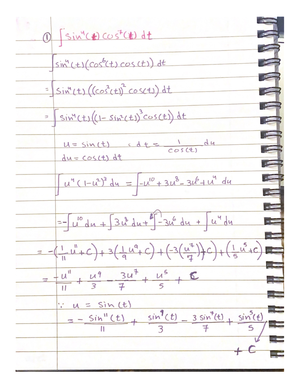 ① ∫sin⁴(t) cos⁷(t) dt
∫sin⁴(t)(cos⁶(t) cos(t)) dt
= ∫sin⁴(t) ((cos²(t))³ cos(t)) dt
= ∫sin⁴(t) ((1 - sin²(t))³ cos(t)) dt
u = sin(t) ∴ dt = 1/cos(t) du
du = cos(t) dt
∫u⁴ (1-u²)³ du = ∫-u¹⁰ + 3u⁸ - 3u⁶ + u⁴ du
= -∫u¹⁰ du + ∫3u⁸ du + ∫-3u⁶ du + ∫u⁴ du
= -(1/11 u¹¹ + C) + 3(1/9 u⁹ + C) + (-3(u⁷/7) + C) + (1/5 u⁵ + C)
= -u¹¹/11 + u⁹/3 - 3u⁷/7 + u⁵/5 + C
∵ u = sin(t)
= - sin¹¹(t)/11 + sin⁹(t)/3 - 3 sin⁷(t)/7 + sin⁵(t)/5
+ C